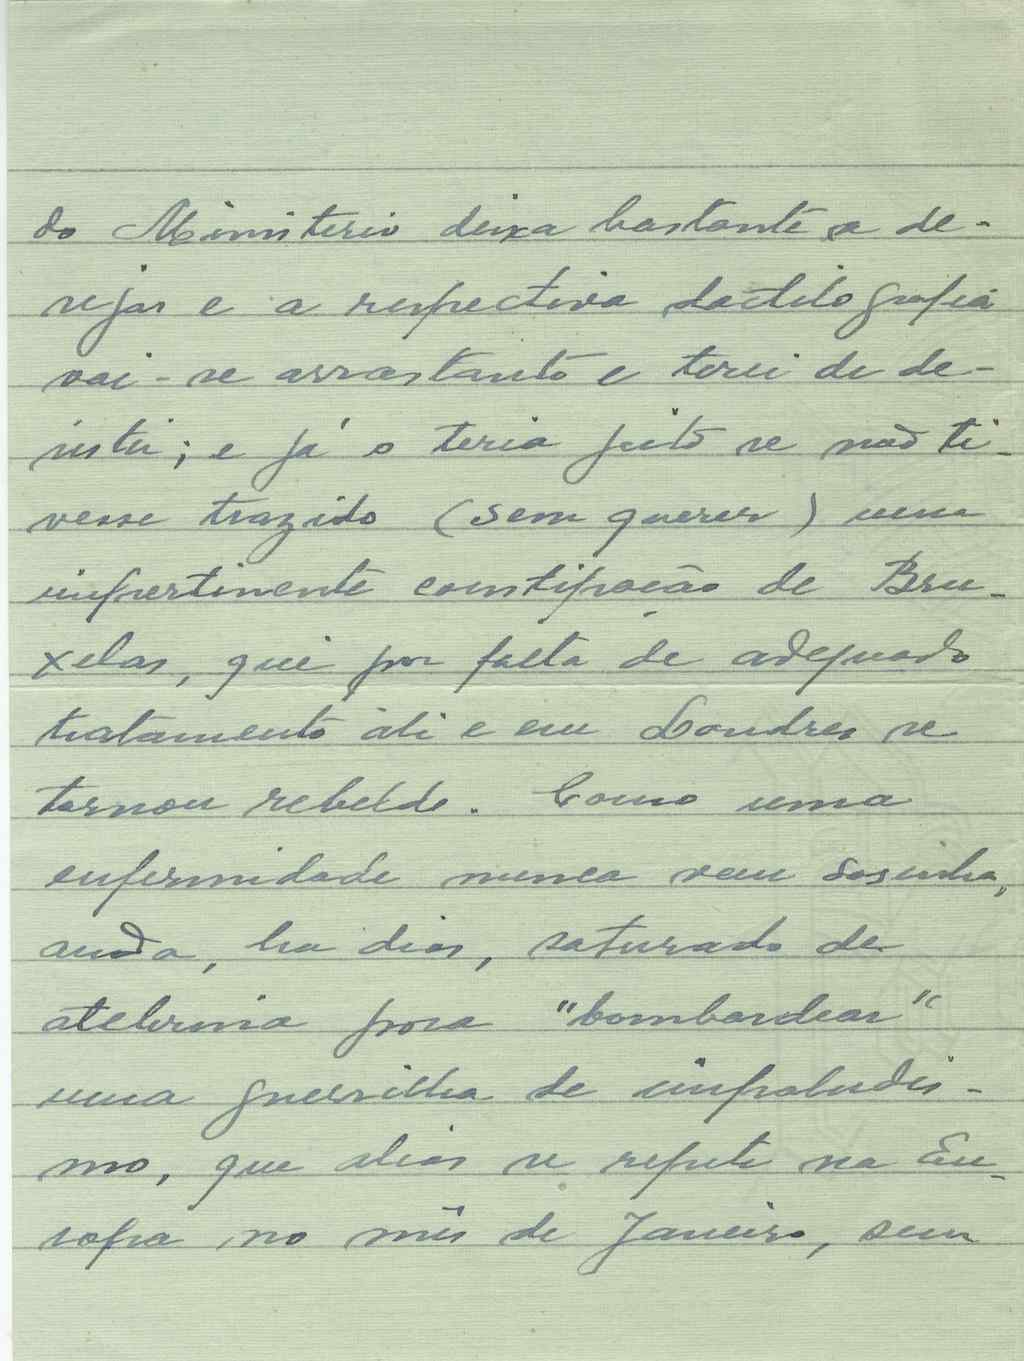 do Ministerio deixa bastante a de-
sejar e a respectiva dactilografia
vai-se arrastanto e terei de de-
sistir; e já o teria feito se não ti-
vesse trazido (sem querer) uma
impertinente constipação de Bru-
xelas, que por falta de adequado
tratamento ali e em Londres se
tornou rebelde. Como uma
enfermidade nunca vem sosinha,
ando, ha dias, saturado de
atebrina para "bombardear"
uma guerrilha de impaludis-
mo, que alias se repete na Eu-
ropa no mês de Janeiro, sem